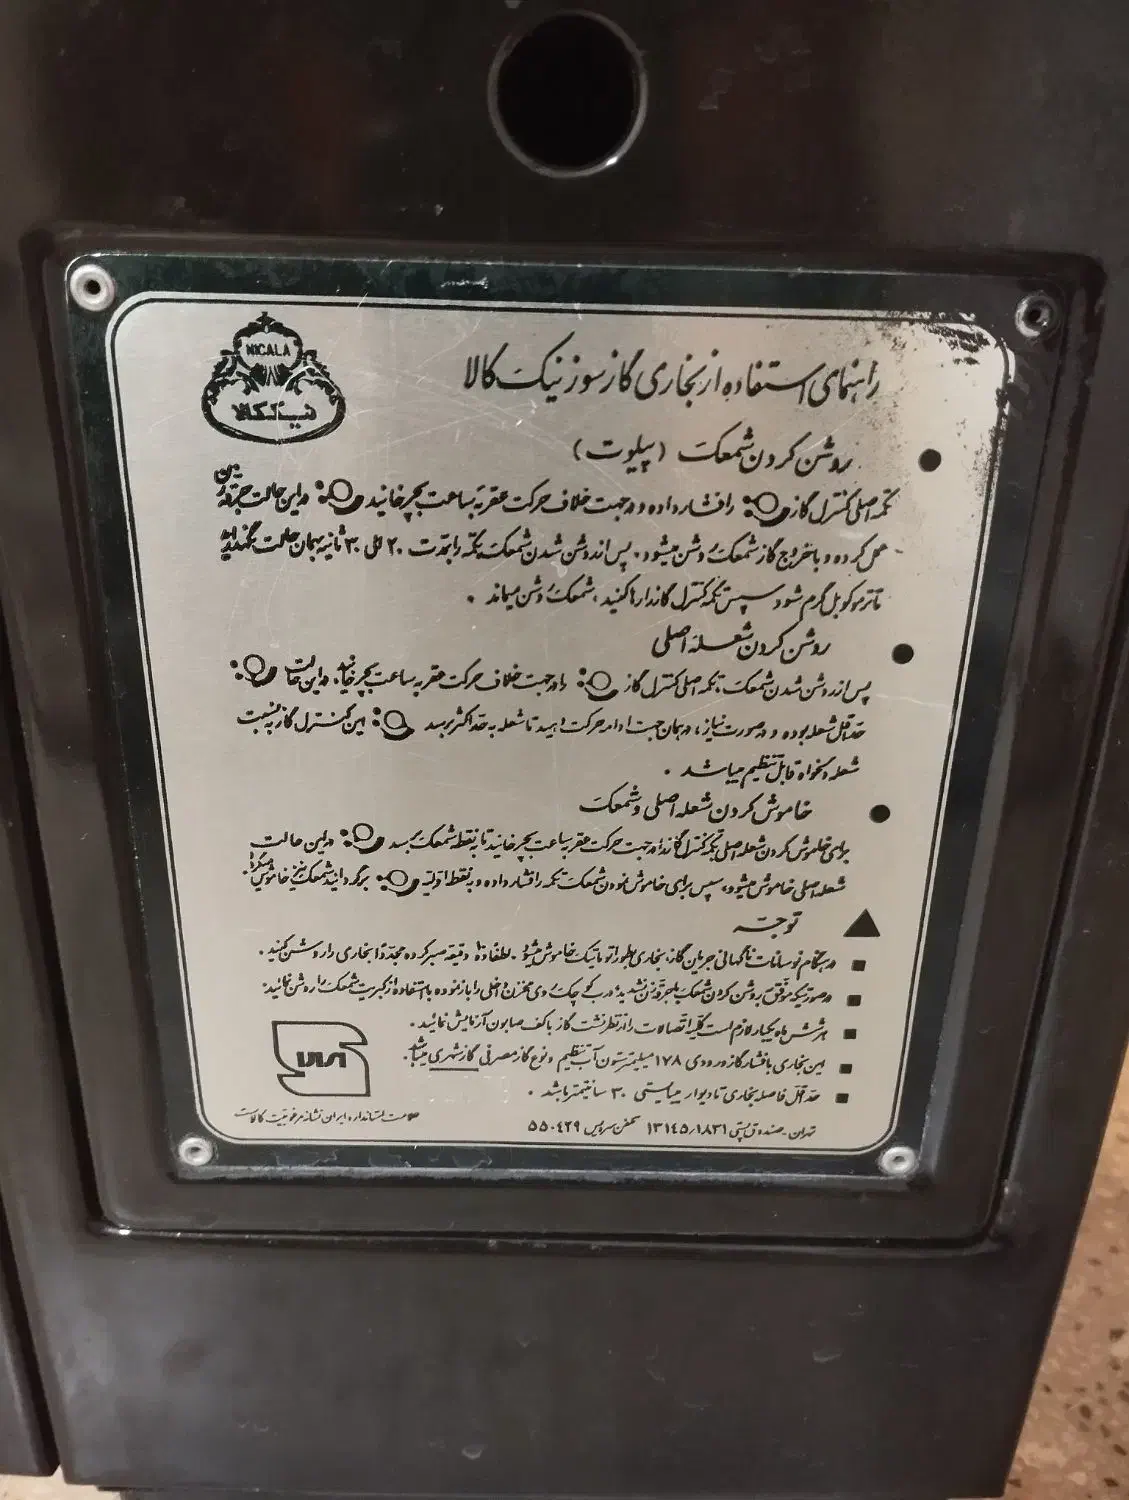 NICALA
نیک کالا
راهنمای استفاده از بخاری گازسوز نیک کالا
روشن کردن شمعک (پیلوت)
تکمه اصلی کنترل گاز را فشار داده و در جهت خلاف حرکت عقربه ساعت بچرخانید در این حالت جرقه زن
عمل کرده و با خروج گاز شمعک روشن میشود. پس از روشن شدن شمعک تکمه را بمدت ۲۰ الی ۳۰ ثانیه بهمان حالت نگهدارید
تا ترموکوپل گرم شود سپس تکمه کنترل گاز را رها کنید، شمعک روشن میماند.
روشن کردن شعله اصلی
پس از روشن شدن شمعک، تکمه اصلی کنترل گاز را در جهت خلاف حرکت عقربه ساعت بچرخانید، در این حالت
حداقل شعله بوده و در صورت نیاز، در همان جهت ادامه حرکت دهید تا شعله به حد اکثر برسد این کنترل گاز به نسبت
شعله دلخواه قابل تنظیم میباشد.
خاموش کردن شعله اصلی و شمعک
برای خاموش کردن شعله اصلی تکمه کنترل گاز را در جهت حرکت عقربه ساعت بچرخانید تا به نقطه شمعک برسد در این حالت
شعله اصلی خاموش میشود، سپس برای خاموش نمودن شمعک تکمه را فشار داده و به نقطه اولیه برگردانید شمعک نیز خاموش میگردد.
توجه
در هنگام نوسانات ناگهانی جریان گاز، بخاری بطور اتوماتیک خاموش میشود. لطفاً ۱۰ دقیقه صبر کرده مجدداً بخاری را روشن کنید.
در صورتیکه موفق به روشن کردن شمعک با جرقه زن نشدید، درب کوچک روی مخزن داخلی را باز نموده با استفاده از کبریت شمعک را روشن نمائید.
هر شش ماه یکبار لازم است کلیه اتصالات را از نظر نشت گاز با کف صابون آزمایش نمائید.
این بخاری با فشار گاز ورودی ۱۷۸ میلیمتر ستون آب تنظیم و نوع گاز مصرفی گاز شهری میباشد.
حداقل فاصله بخاری تا دیوار میبایستی ۳۰ سانتیمتر باشد.
تهران - صندوق پستی ۱۳۱۴۵/۱۸۳۱ تلفن سرویس ۵۵۰۴۲۹
علامت استاندارد ایران نشانه مرغوبیت کالاست